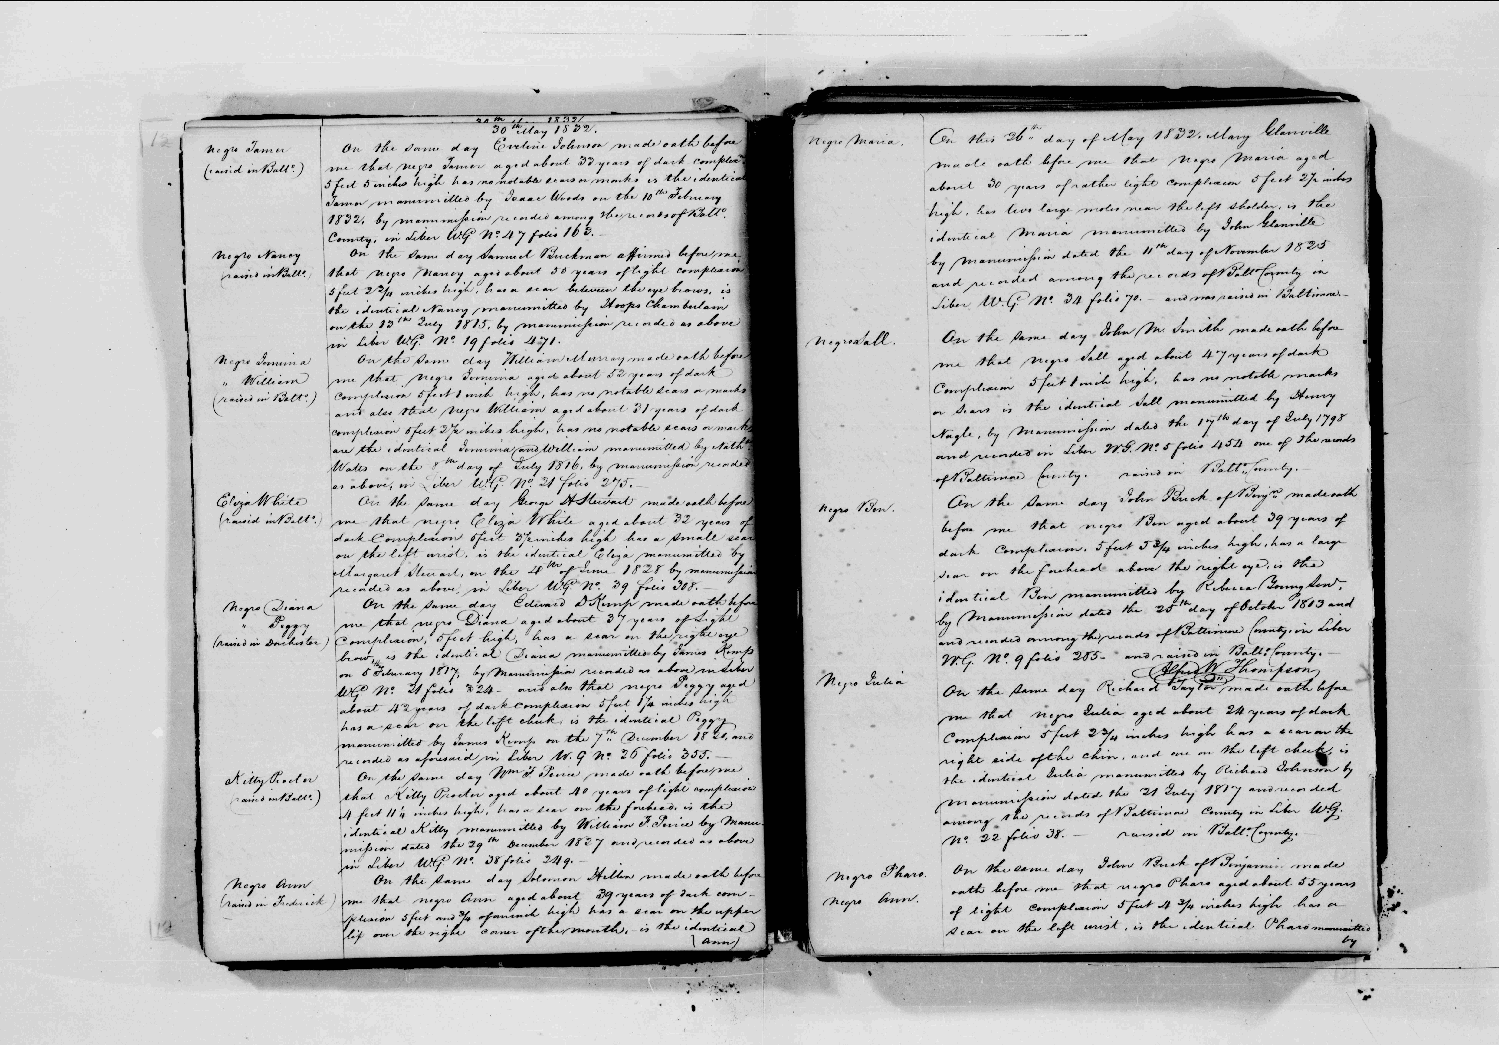 30th May 1832.
Negro Tamer
(raised in Balto.)
On the same day Eveline Johnson made oath before
me that negro Tamer aged about 33 years of dark complex
5 feet 5 inches high has no notable scars or marks is the identical
Tamer manumitted by Isaac Woods on the 10th February
1832, by manumission recorded among the records of Balto.
County, in Liber W.G. No. 47 folio 163.
Negro Nancy
(raised in Balto.)
On the same day Samuel Buckman affirmed before me,
that negro Nancy aged about 30 years of light complexion
5 feet 2 3/4 inches high, has a scar between the eye brows, is
the identical Nancy manumitted by Hoops Chamberlain
on the 13th July 1815, by manumission recorded as above
in Liber W.G. No. 19 folio 471.
Negro Jemima
" William
(raised in Balto.)
On the same day William Murray made oath before
me that negro Jemima aged about 52 years of dark
complexion 5 feet 1 inch high, has no notable scars or marks
and also that negro William aged about 31 years of dark
complexion 5 feet 2 1/2 inches high, has no notable scars or marks
are the identical Jemima and William manumitted by
Wales on the 8th day of July 1816, by manumission recorded
as above, in Liber W.G. No. 21 folio 275.—
Eliza White
(raised in Balto.)
On the same day George H Stewart made oath before
me that negro Eliza White aged about 32 years of
dark Complexion 5 feet 3 1/2 inches high has a small scar
on the left wrist, is the identical Eliza manumitted by
Margaret Stewart, on the 4th of June 1828 by manumission
recorded as above, in Liber W.G. No. 39 folio 308.—
Negro Diana
" Peggy
(raised in Dorchester)
On the same day Edward D Kemp made oath before
me that negro Diana aged about 37 years of Light
Complexion, 5 feet high, has a scar on the right eye
brow, is the identical Diana manumitted by James Kemp
on 5 February 1817, by Manumission recorded as above in Liber
W.G. No. 21 folio 324 - and also that negro Peggy aged
about 42 years of dark complexion 5 feet 1 1/4 inches high
has a scar on the left cheek, is the identical Peggy
manumitted by James Kemp on the 7th December and
recorded as aforesaid in Liber W.G No. 26 folio 355.—
Kitty Proctor
(raised in Balto.)
On the same day Wm F Peirce made oath before me
that Kitty Proctor aged about 40 years of light complexion
4 feet 11 1/4 inches high, has a scar on the forehead, is the
identical Kitty manumitted by William F. Peirce by Manu-
mission dated the 29th December 1827 and recorded as above
in Liber W.G. No. 38 folio 249.—
Negro Ann
(raised in Frederick)
On the same day Solomon Hillen made oath before
me that negro Ann aged about 39 years of dark com-
plexion 5 feet and 3/4 of an inch high has a scar on the upper
lip over the right corner of the mouth, - is the identical
(Ann)
Negro Maria.
On this 30th day of May 1832, Mary Glanville
made oath before me that Negro Maria aged
about 30 years of rather light complexion 5 feet 2 1/2 inches
high, has two large moles near the left sholder, is the
identical Maria manumitted by John Glanville
by manumission dated the 11th day of November 1825
and recorded among the records of Balto County in
Liber W.G. No. 34 folio 70.— and was raised in Baltimore—
Negro Sall.
On the same day John M. Smith made oath before
me that negro Sall aged about 47 years of dark
Complexion 5 feet 1 inch high, has no notable marks
or Scars is the identical Sall manumitted by Henry
Nagle, by Manumission dated the 17th day of July 1798
and recorded in Liber W.G. No. 5 folio 454 one of the records
of Baltimore County. raised in Balto. County.—
Negro Ben.
On the same day John Buck of Benjn. made oath
before me that negro Ben aged about 39 years of
dark Complexion, 5 feet 5 3/4 inches high, has a large
scar on the forehead above the right eye, is the
identical Ben manumitted by Rebecca Young Senr.
by Manumission dated the 25th day of October 1813 and
and recorded among the records of Baltimore County in Liber
W.G. No. 9 folio 285 - and raised in Balto. County.—
W. Thompson
Negro Julia
On the same day Richard Taylor made oath before
me that negro Julia aged about 24 years of dark
Complexion 5 feet 2 3/4 inches high has a scar on the
right side of the chin, and one on the left cheek, is
the identical Julia manumitted by Richard Johnson by
manumission dated the 21 July 1817 and recorded
among the records of Baltimore County in Liber W.G.
No. 22 folio 38.— raised in Balto. County.—
Negro Pharo.
Negro Ann.
On the same day John Buck of Benjamin made
oath before me that negro Pharo aged about 55 years
of light complexion 5 feet 4 3/4 inches high has a
scar on the left wrist, is the identical Pharo manumitted
by